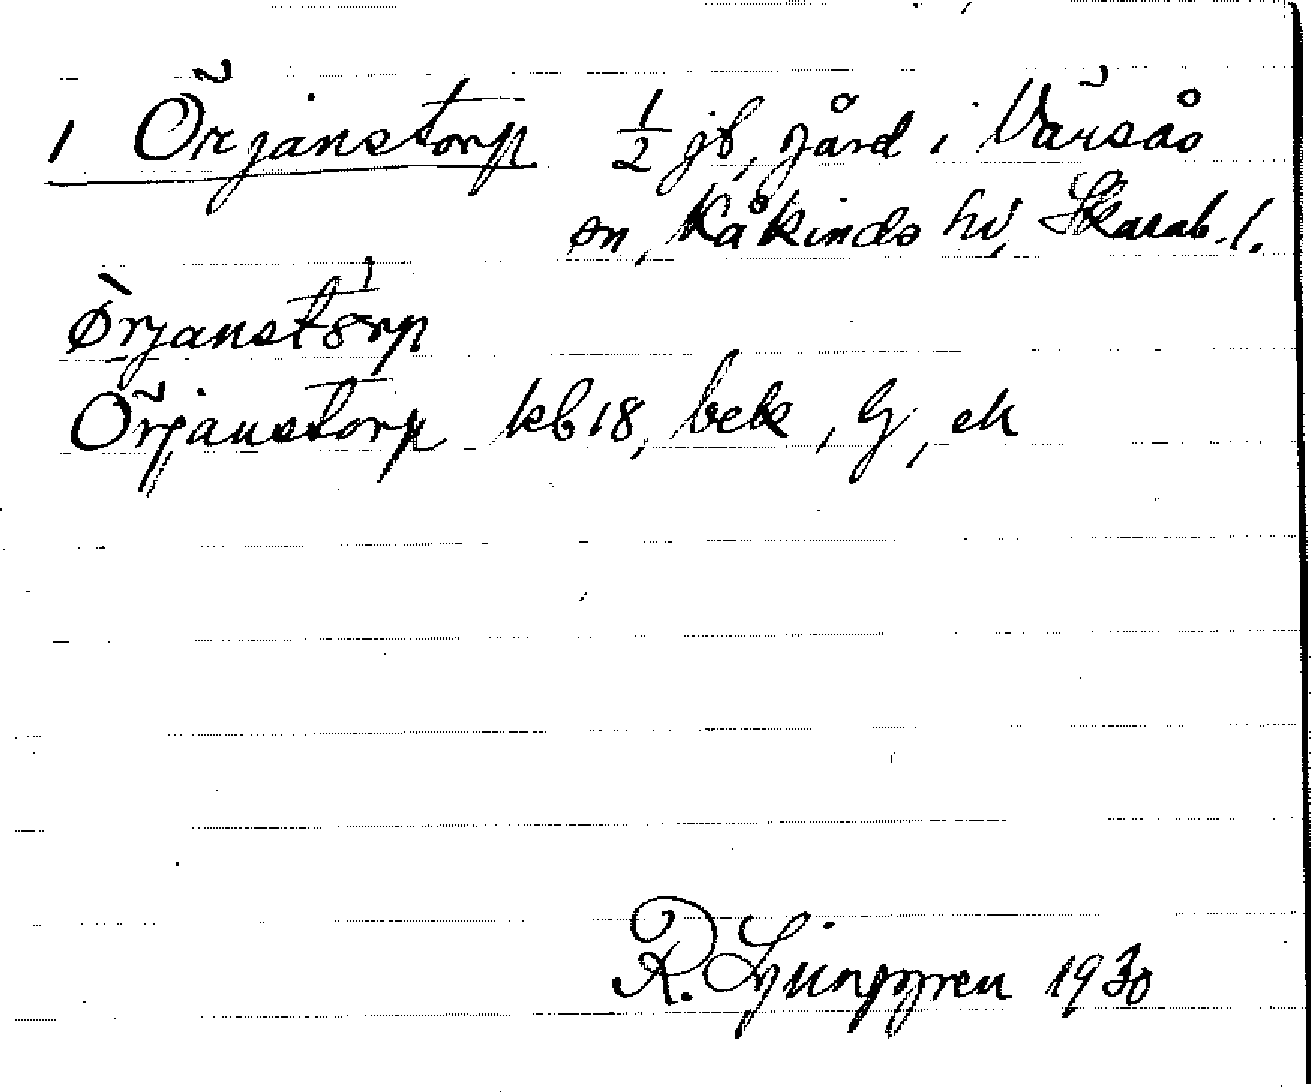 1 Örjanstorp 1/2 jb, gård i Värsås
sn, Kåkinds hd, Skarab. l.
Örjanstorp
Örjanstorp kb 18, bebk, G, ek
R. Ljunggren 1930